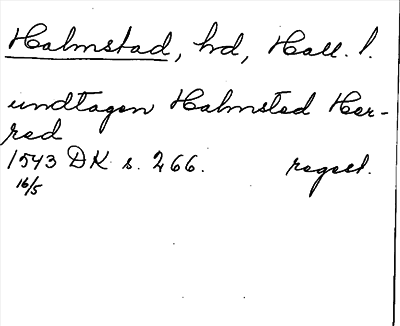 Halmstad, hd, Hall. l.
undtagen Halmsted Her-
red
1543 DK s. 266. regest.
16/5